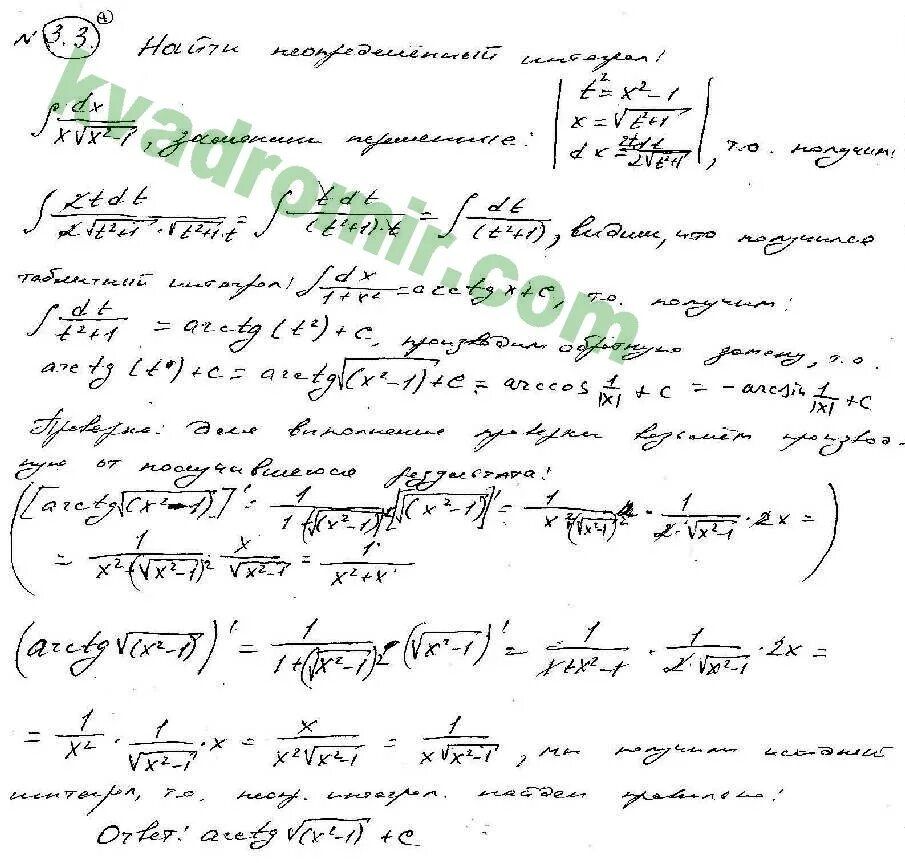 N 3.3. (A) Найти неопределённый интеграл!
∫ dx / (x√(x²-1)), заменим переменные: | t² = x²-1 ; x = √(t²+1) ; dx = 2tdt / (2√(t²+1)) |, т.о. получим:
∫ 2tdt / (2√(t²+1)·√(t²+1)·t) = ∫ tdt / ((t²+1)·t) = ∫ dt / (t²+1), видим, что получился
табличный интеграл! ∫ dx / (1+x²) = arctg x + c, т.о. получим:
∫ dt / (t²+1) = arctg (t²) + c, производим обратную замену, т.о.
arctg (t) + c = arctg √(x²-1) + c = arccos 1/|x| + c = -arcsin 1/|x| + c
Проверка: Для выполнения проверки возьмём производ-
ную от получившегося результата!
([arctg √(x²-1)]' = 1 / (1+(√(x²-1))²) · [√(x²-1)]' = 1 / (x²(√(x²-1))²) · 1 / (2·√(x²-1)) · 2x =
= 1 / (x²+(√(x²-1))²) · x / √(x²-1) = 1 / (x²+x))
(arctg √(x²-1))' = 1 / (1+(√(x²-1))²) · (√(x²-1))' = 1 / (1+x²-1) · 1 / (2·√(x²-1)) · 2x =
= 1/x² · 1/√(x²-1) · x = x / (x²√(x²-1)) = 1 / (x√(x²-1)), мы получили исходный
интеграл, т.о. неопр. интеграл. найден правильно!
Ответ: arctg √(x²-1) + c
kvadromir.com